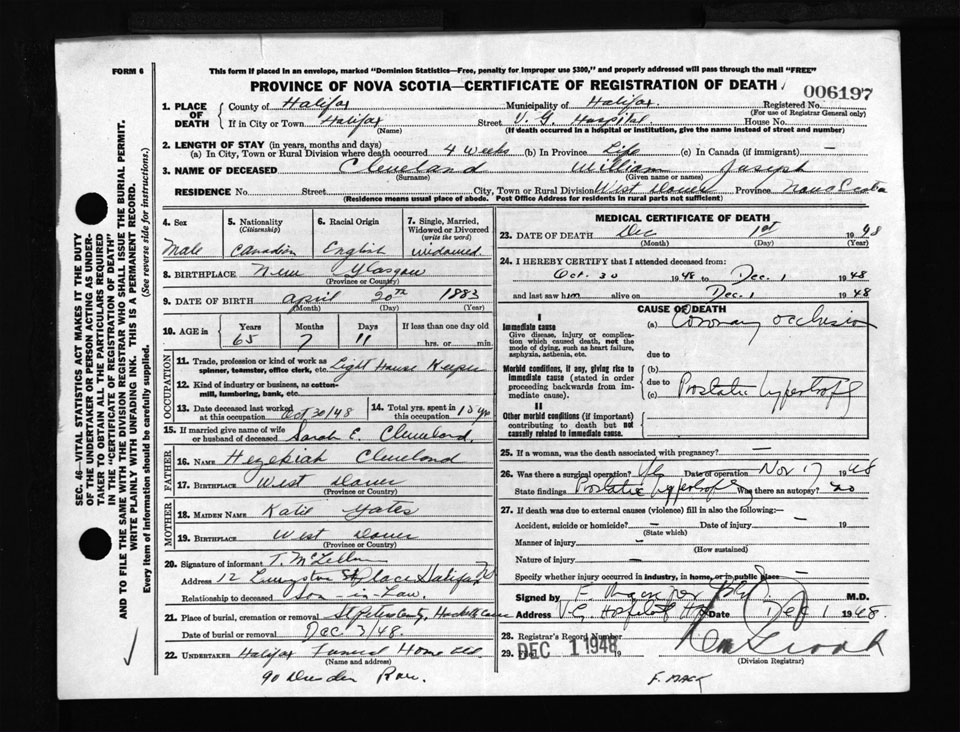 FORM 6
This form if placed in an envelope, marked "Dominion Statistics—Free, penalty for improper use $300," and properly addressed will pass through the mail "FREE"
PROVINCE OF NOVA SCOTIA—CERTIFICATE OF REGISTRATION OF DEATH
006197
1. PLACE OF DEATH County of Halifax Municipality of Halifax. Registered No.
(For use of Registrar General only)
If in City or Town Halifax Street V. G. Hospital House No.
(Name) (If death occurred in a hospital or institution, give the name instead of street and number)
2. LENGTH OF STAY (in years, months and days)
(a) In City, Town or Rural Division where death occurred 4 weeks (b) In Province Life (c) In Canada (if immigrant) —
3. NAME OF DECEASED Cleveland William Joseph
(Surname) (Given name or names)
RESIDENCE No. Street City, Town or Rural Division West Dover Province Nova Scotia
(Residence means usual place of abode. Post Office Address for residents in rural parts not sufficient)
4. Sex 5. Nationality 6. Racial Origin 7. Single, Married, Widowed or Divorced
(Citizenship) (write the word)
Male Canadian English widowed.
8. BIRTHPLACE New Glasgow
(Province or Country)
9. DATE OF BIRTH April 20th 1883
(Month) (Day) (Year)
10. AGE in Years Months Days If less than one day old
65 7 11 hrs. or min.
OCCUPATION
11. Trade, profession or kind of work as spinner, teamster, office clerk, etc. Light House Keeper
12. Kind of industry or business, as cotton-mill, lumbering, bank, etc.
13. Date deceased last worked at this occupation Oct 30/48 14. Total yrs. spent in this occupation 10 yr
15. If married give name of wife or husband of deceased Sarah E. Cleveland.
FATHER
16. NAME Hezekiah Cleveland
17. BIRTHPLACE West Dover
(Province or Country)
MOTHER
18. MAIDEN NAME Katie Yates
19. BIRTHPLACE West Dover
(Province or Country)
20. Signature of informant
Address 12 Livingston Place Halifax
Relationship to deceased son-in-Law.
21. Place of burial, cremation or removal St Peters
Date of burial or removal Dec 3/48.
22. UNDERTAKER Halifax Funeral Home Ltd.
(Name and address)
90 Row.
MEDICAL CERTIFICATE OF DEATH
23. DATE OF DEATH Dec 1st 1948
(Month) (Day) (Year)
24. I HEREBY CERTIFY that I attended deceased from:
Oct. 30 1948 to Dec. 1 1948
and last saw him alive on Dec. 1 1948
CAUSE OF DEATH
I
Immediate cause
Give disease, injury or complication which caused death, not the mode of dying, such as heart failure, asphyxia, asthenia, etc.
(a) Coronary occlusion
due to
Morbid conditions, if any, giving rise to immediate cause (stated in order proceeding backwards from immediate cause).
(b)
due to
(c) Prostatic hypertrophy
II
Other morbid conditions (if important) contributing to death but not causally related to immediate cause.
25. If a woman, was the death associated with pregnancy? —
26. Was there a surgical operation? Yes Date of operation Nov 17 1948
State findings Prostatic hypertrophy Was there an autopsy? no
27. If death was due to external causes (violence) fill in also the following:—
Accident, suicide or homicide? — Date of injury — 19
(State which)
Manner of injury —
(How sustained)
Nature of injury —
Specify whether injury occurred in industry, in home, or in public place —
Signed by M.D.
Address V.G. Hospital Hfx Date Dec 1 1948.
28. Registrar's Record Number
29. DEC 1 1948 19
(Division Registrar)
F. MACK
SEC. 46—VITAL STATISTICS ACT MAKES IT THE DUTY
OF THE UNDERTAKER OR PERSON ACTING AS UNDER-
TAKER TO OBTAIN ALL THE PARTICULARS REQUIRED
IN THE "CERTIFICATE OF REGISTRATION OF DEATH"
AND TO FILE THE SAME WITH THE DIVISION REGISTRAR WHO SHALL ISSUE THE BURIAL PERMIT.
WRITE PLAINLY WITH UNFADING INK. THIS IS A PERMANENT RECORD.
Every item of information should be carefully supplied. (See reverse side for instructions.)